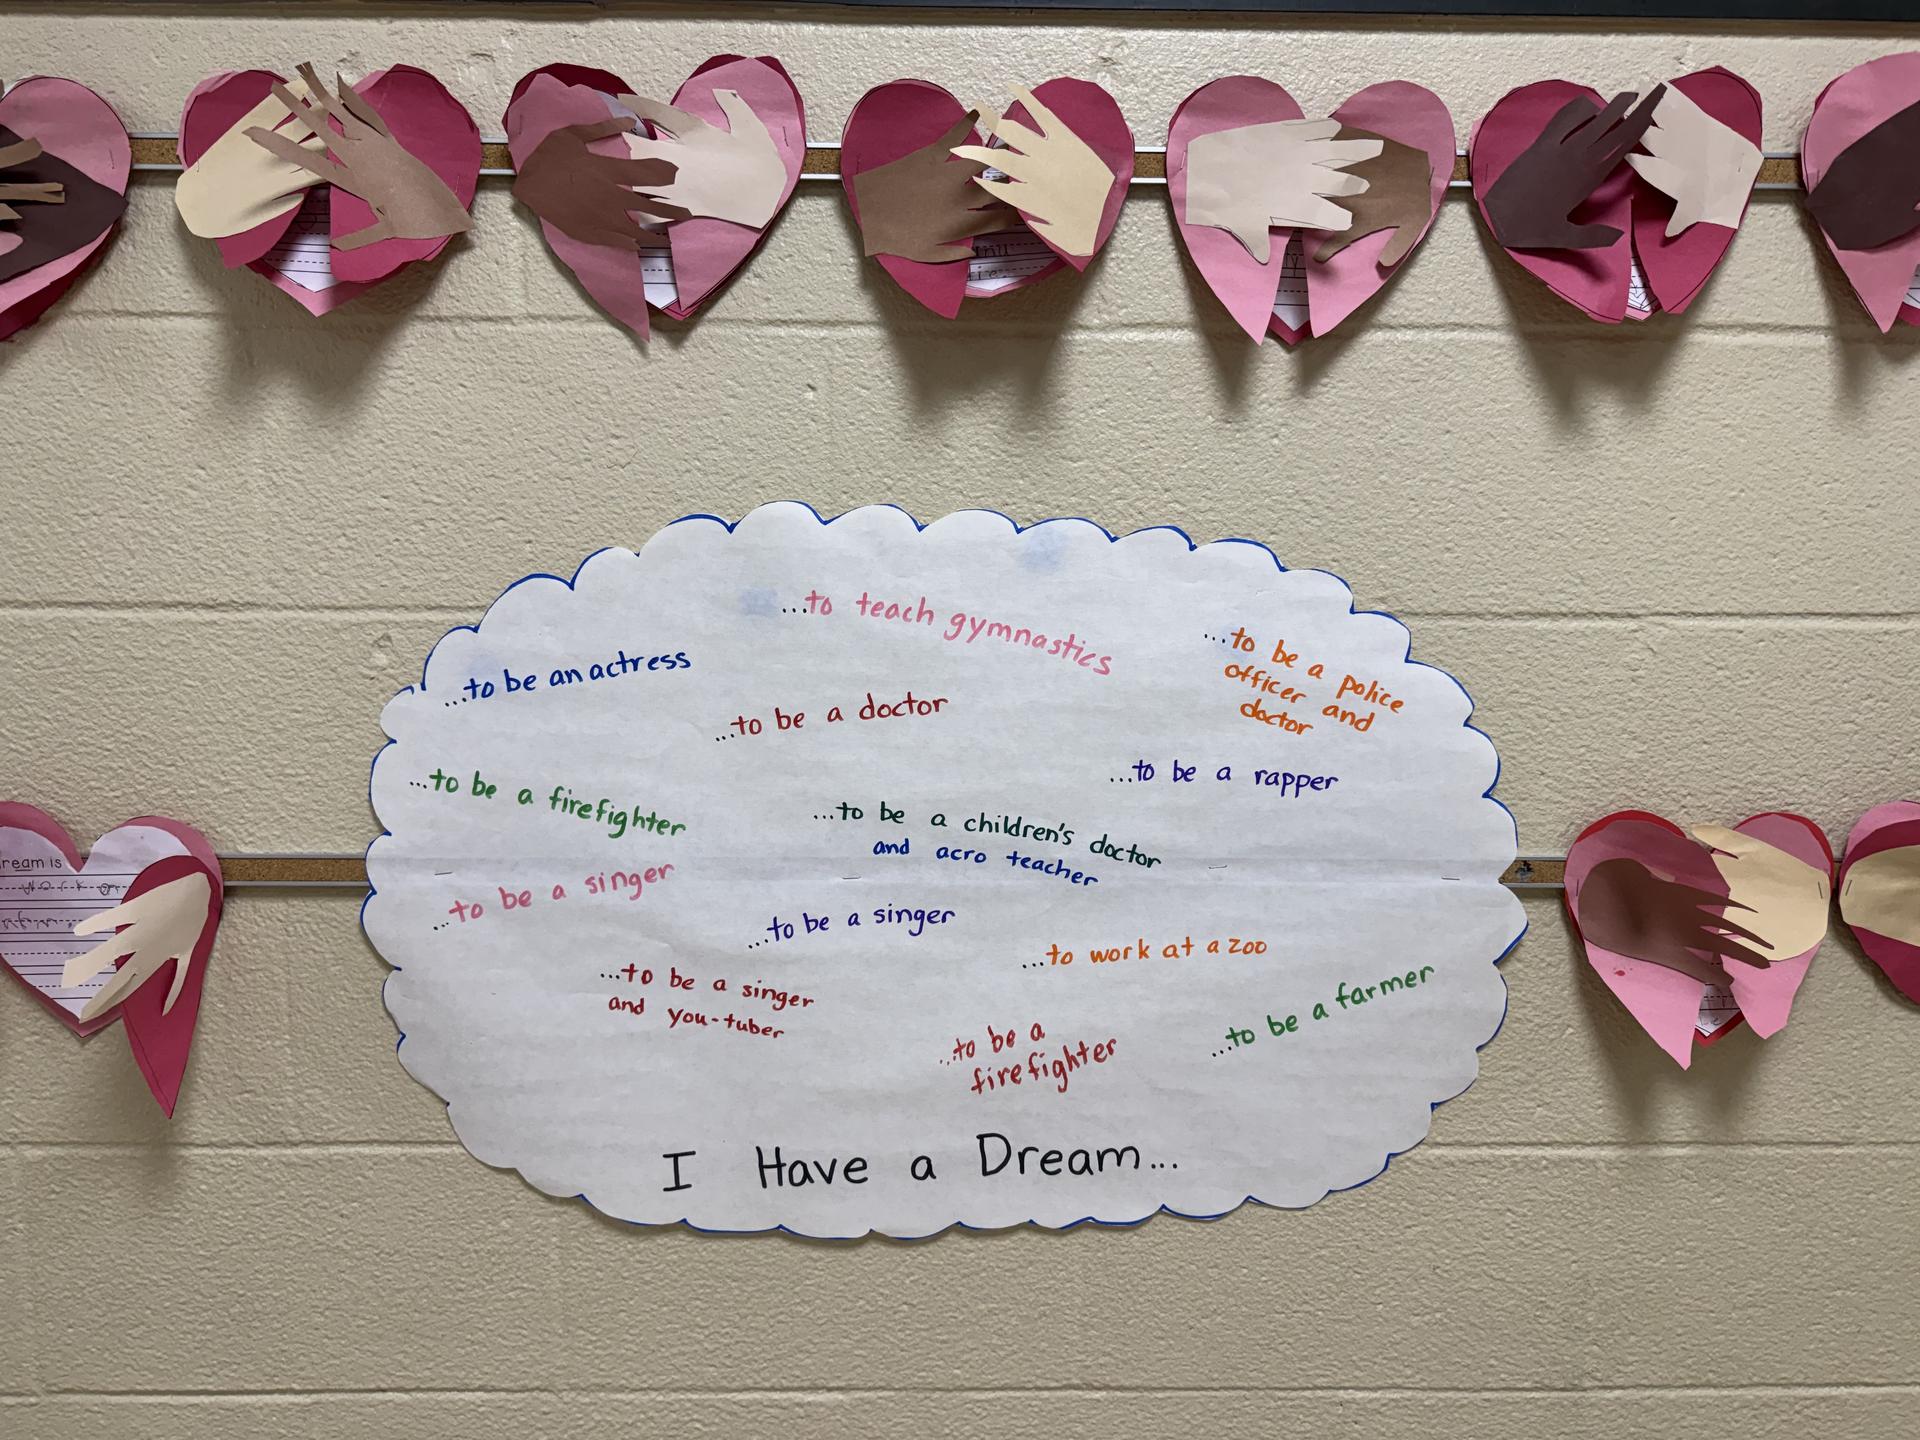 ...to teach gymnastics
...to be an actress
...to be a police
officer and
doctor
...to be a doctor
...to be a rapper
...to be a firefighter
...to be a children's doctor
and acro teacher
...to be a singer
...to be a singer
...to work at a zoo
...to be a singer
and you-tuber
...to be a farmer
...to be a
firefighter
I Have a Dream...
ream is